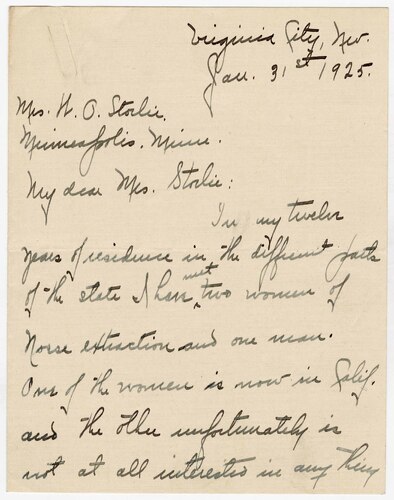 Virginia City, Nev.
Jan. 31st 1925.
Mrs. H. O. Storlie,
Minneapolis, Minn.
My dear Mrs. Storlie:
In my twelve
years of residence in the different parts
of the state I have met two women of
Norse extraction and one man.
One of the women is now in Calif.
and the other unfortunately is
not at all interested in any thing